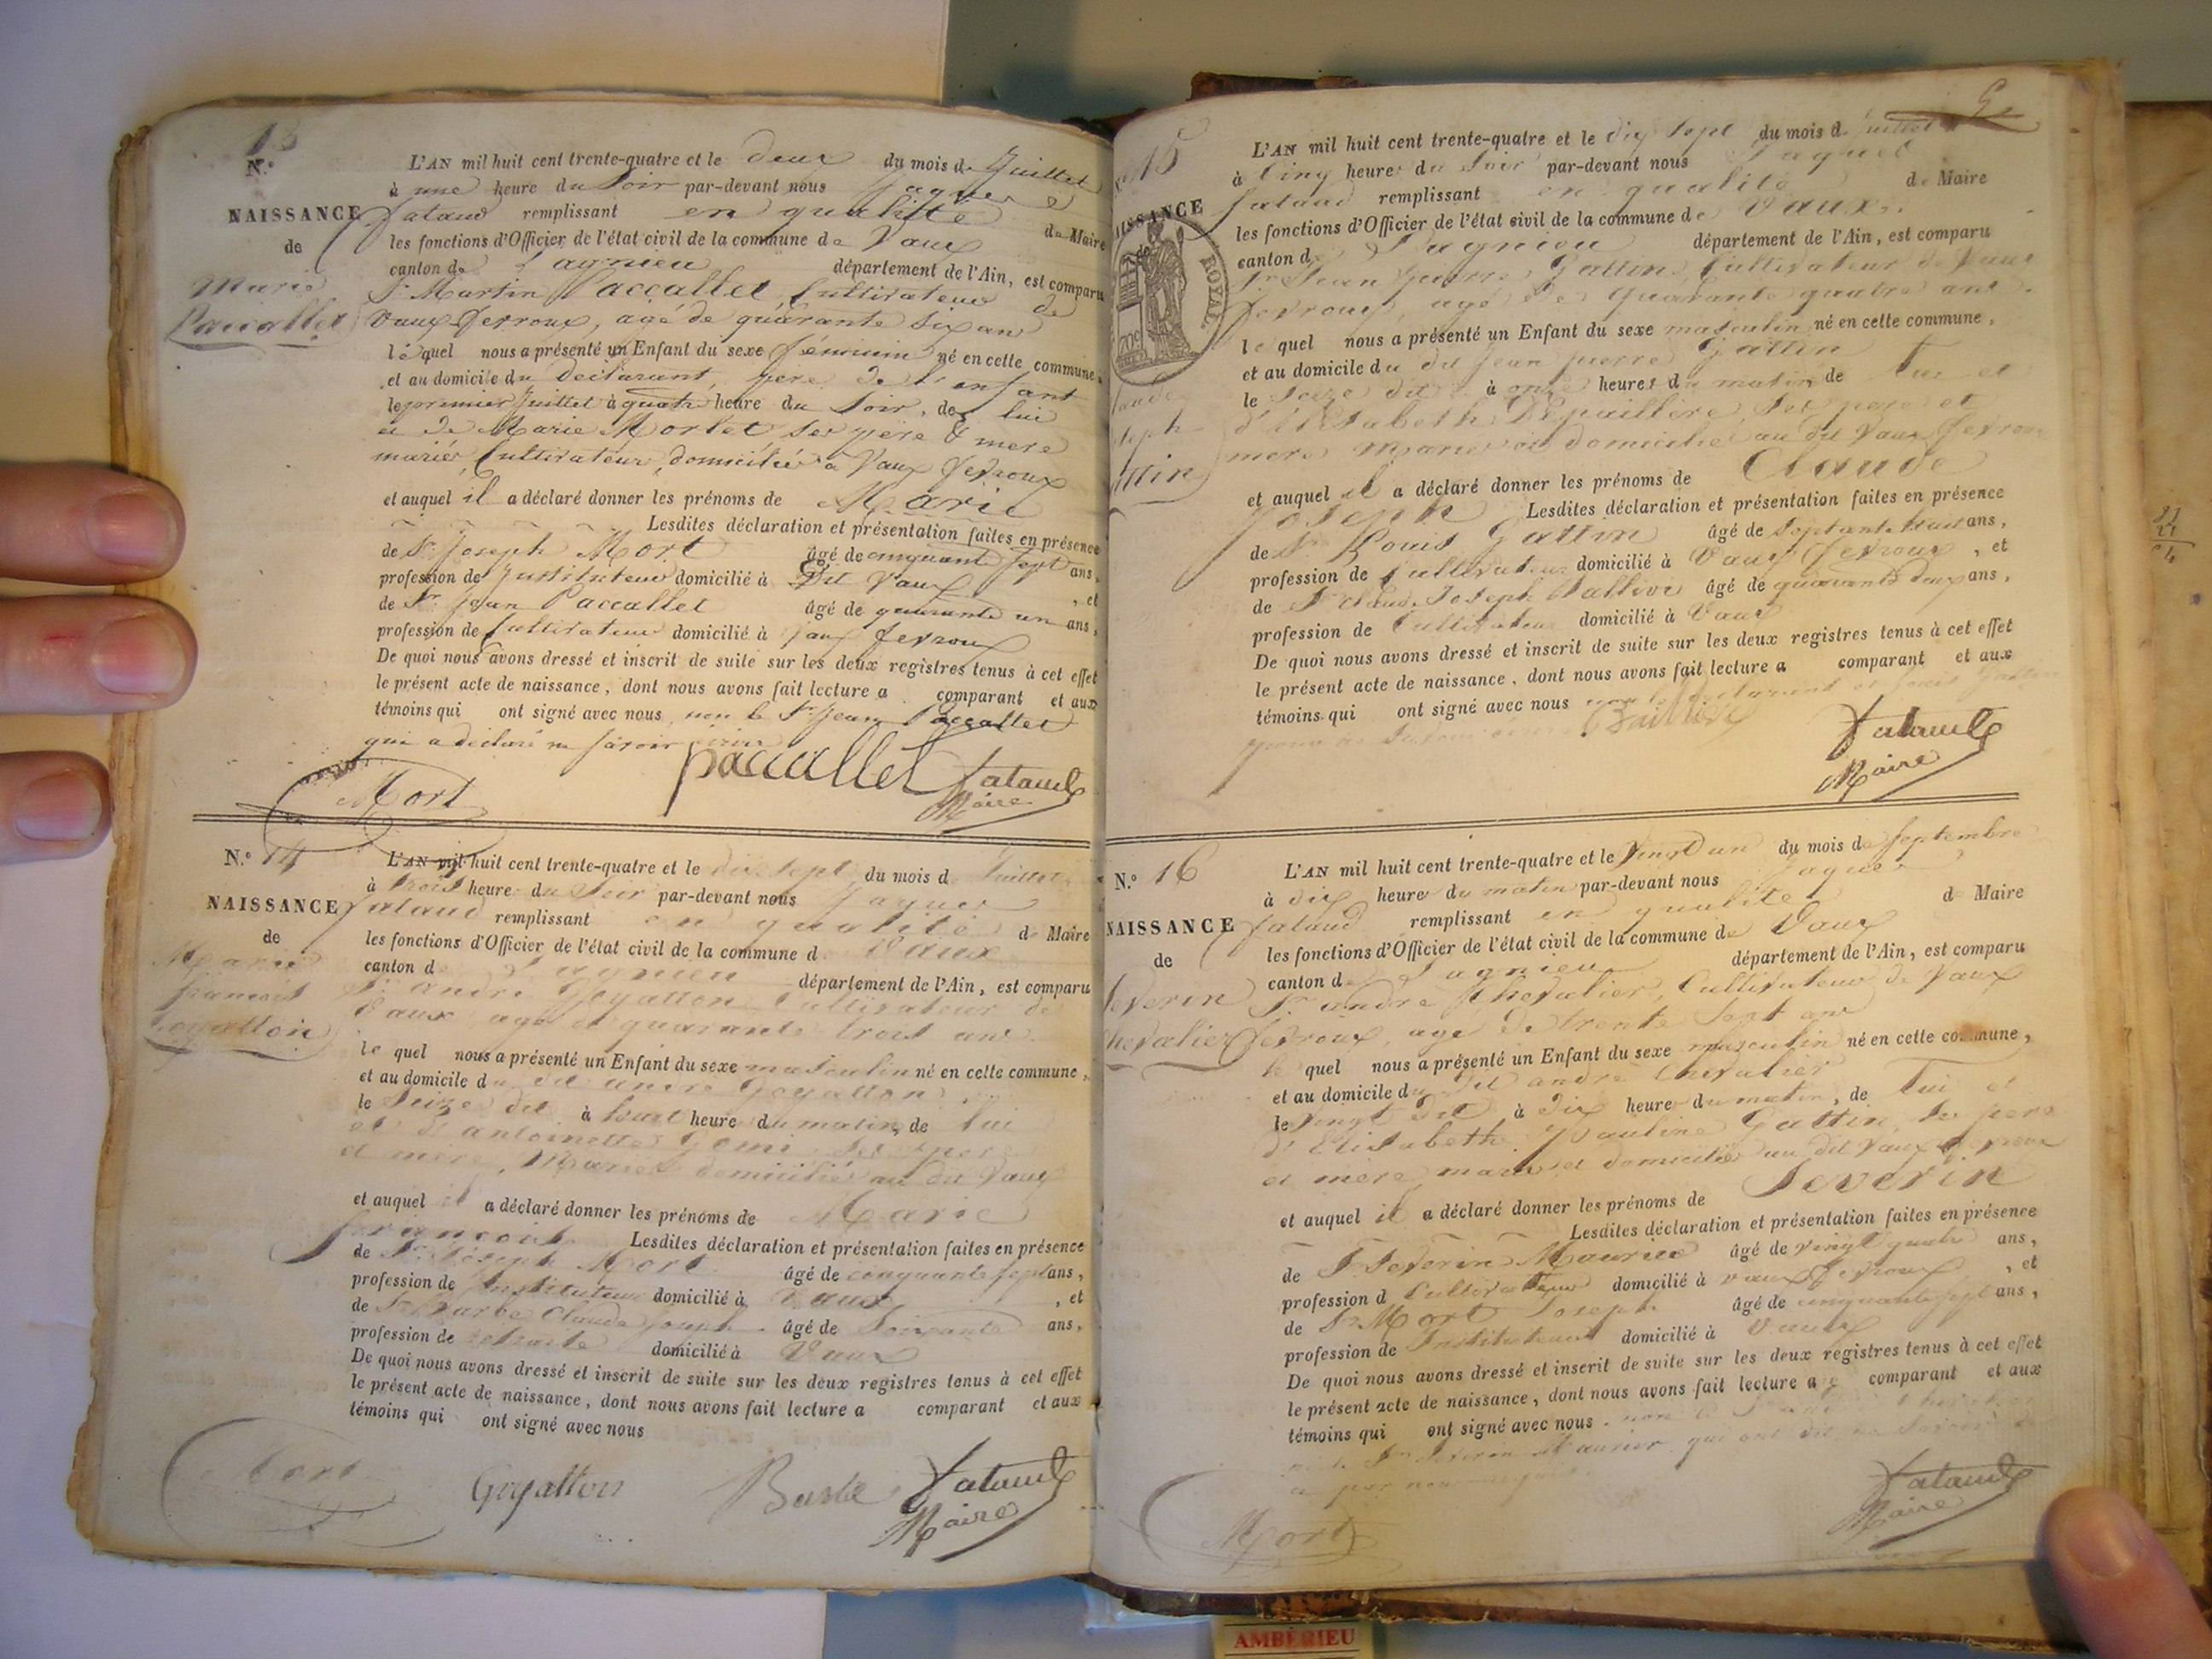 13
N.°
NAISSANCE
de
Marie
Paccallet
L'AN mil huit cent trente-quatre et le deux du mois de Juillet
à une heure du Soir par-devant nous Jaques
fataud remplissant en qualité de Maire
les fonctions d'Officier de l'état civil de la commune de Vaux
canton de Lagnieu département de l'Ain, est comparu
Sr. Martin Paccallet, Cultivateur de
Vaux fevroux, agé de quarante six ans
lequel nous a présenté un Enfant du sexe féminin né en cette commune,
et au domicile du declarant, pere de l'enfant
le premier Juillet à quatre heure du Soir, de lui
et de Marie Mortet ses père & mere
mariés, Cultivateur, domiciliés à Vaux fevroux
et auquel il a déclaré donner les prénoms de Marie
Lesdites déclaration et présentation faites en présence
de Sr. Joseph Mort âgé de cinquante sept ans,
profession de Instituteur domicilié à Dit Vaux , et
de Sr. Jean Paccallet âgé de quarante un ans,
profession de Cultivateur domicilié à Vaux fevroux
De quoi nous avons dressé et inscrit de suite sur les deux registres tenus à cet effet
le présent acte de naissance, dont nous avons fait lecture a comparant et aux
témoins qui ont signé avec nous non le Sr. Jean Paccallet
qui a déclaré ne savoir écrire
Mort paccallet fataud
Maire
N.° 14
NAISSANCE
de
Marie
francois
Goyatton
L'AN mil huit cent trente-quatre et le dix sept du mois d Juillet
à trois heure du Soir par-devant nous Jaques
fataud remplissant en qualité de Maire
les fonctions d'Officier de l'état civil de la commune d Vaux
canton d Lagnieu département de l'Ain, est comparu
Sr. andré Goyatton Cultivateur de
Vaux agé de quarante trois ans
le quel nous a présenté un Enfant du sexe masculin né en cette commune,
et au domicile du dit andré Goyatton
le Seize dit à huit heure du matin, de lui
et d'antoinette Gomi ses pere
et mere, Mariés domiciliés au dit Vaux
et auquel il a déclaré donner les prénoms de Marie
francois Lesdites déclaration et présentation faites en présence
de Sr. Joseph Mort âgé de cinquante sept ans,
profession de Instituteur domicilié à Vaux , et
de Sr. Barbe Claude Joseph âgé de Soixante ans,
profession de retraite domicilié à Vaux
De quoi nous avons dressé et inscrit de suite sur les deux registres tenus à cet effet
le présent acte de naissance, dont nous avons fait lecture a comparant et aux
témoins qui ont signé avec nous
Mort Goyatton Barbe fataud
Maire
5
15
ISSANCE
de
ROYAL
aude
seph
ttin
L'AN mil huit cent trente-quatre et le dix sept du mois d Juillet
à Cinq heures du Soir par-devant nous Jaques
fataud remplissant en qualité de Maire
les fonctions d'Officier de l'état civil de la commune de Vaux
canton de Lagnieu département de l'Ain, est comparu
Sr. Jean pierre Gattin, Cultivateur de Vaux
fevroux, agé de quarante quatre ans
lequel nous a présenté un Enfant du sexe masculin né en cette commune,
et au domicile du dit jean pierre Gattin
le Seize dit à onze heures du matin, de lui et
d'Elisabeth Depaillère, ses pere et
mere mariés et domiciliés au dit Vaux fevroux
et auquel il a déclaré donner les prénoms de Claude
Joseph Lesdites déclaration et présentation faites en présence
de Sr. Louis Gattin âgé de Septante huit ans,
profession de Cultivateur domicilié à Vaux fevroux , et
de Sr. Claude Joseph âgé de quarante deux ans,
profession de Cultivateur domicilié à Vaux
De quoi nous avons dressé et inscrit de suite sur les deux registres tenus à cet effet
le présent acte de naissance, dont nous avons fait lecture a comparant et aux
témoins qui ont signé avec nous non le declarant et Louis Gattin
fataud
Maire
N.° 16
NAISSANCE
de
Severin
Chevalier
L'AN mil huit cent trente-quatre et le Vingt un du mois de Septembre
à dix heure du matin par-devant nous Jaques
fataud remplissant en qualité de Maire
les fonctions d'Officier de l'état civil de la commune de Vaux
canton de Lagnieu département de l'Ain, est comparu
Sr. andré Chevalier, Cultivateur de Vaux
fevroux, agé de trente Sept ans
le quel nous a présenté un Enfant du sexe masculin né en cette commune,
et au domicile du dit andré Chevalier
le Vingt dit à dix heure du matin, de lui et
d'Elisabeth Pauline Gattin, ses pere
et mere mariés et domiciliés au dit Vaux fevroux
et auquel il a déclaré donner les prénoms de Severin
Lesdites déclaration et présentation faites en présence
de Sr Severin Maurier âgé de vingt quatre ans,
profession d Cultivateur domicilié à vaux fevroux , et
de Sr. Mort Joseph âgé de cinquante sept ans,
profession de Instituteur domicilié à Vaux
De quoi nous avons dressé et inscrit de suite sur les deux registres tenus à cet effet
le présent acte de naissance, dont nous avons fait lecture a comparant et aux
témoins qui ont signé avec nous non le
Severin Maurier qui ont dit ne savoir
Mort fataud
Maire
AMBÉRIEU